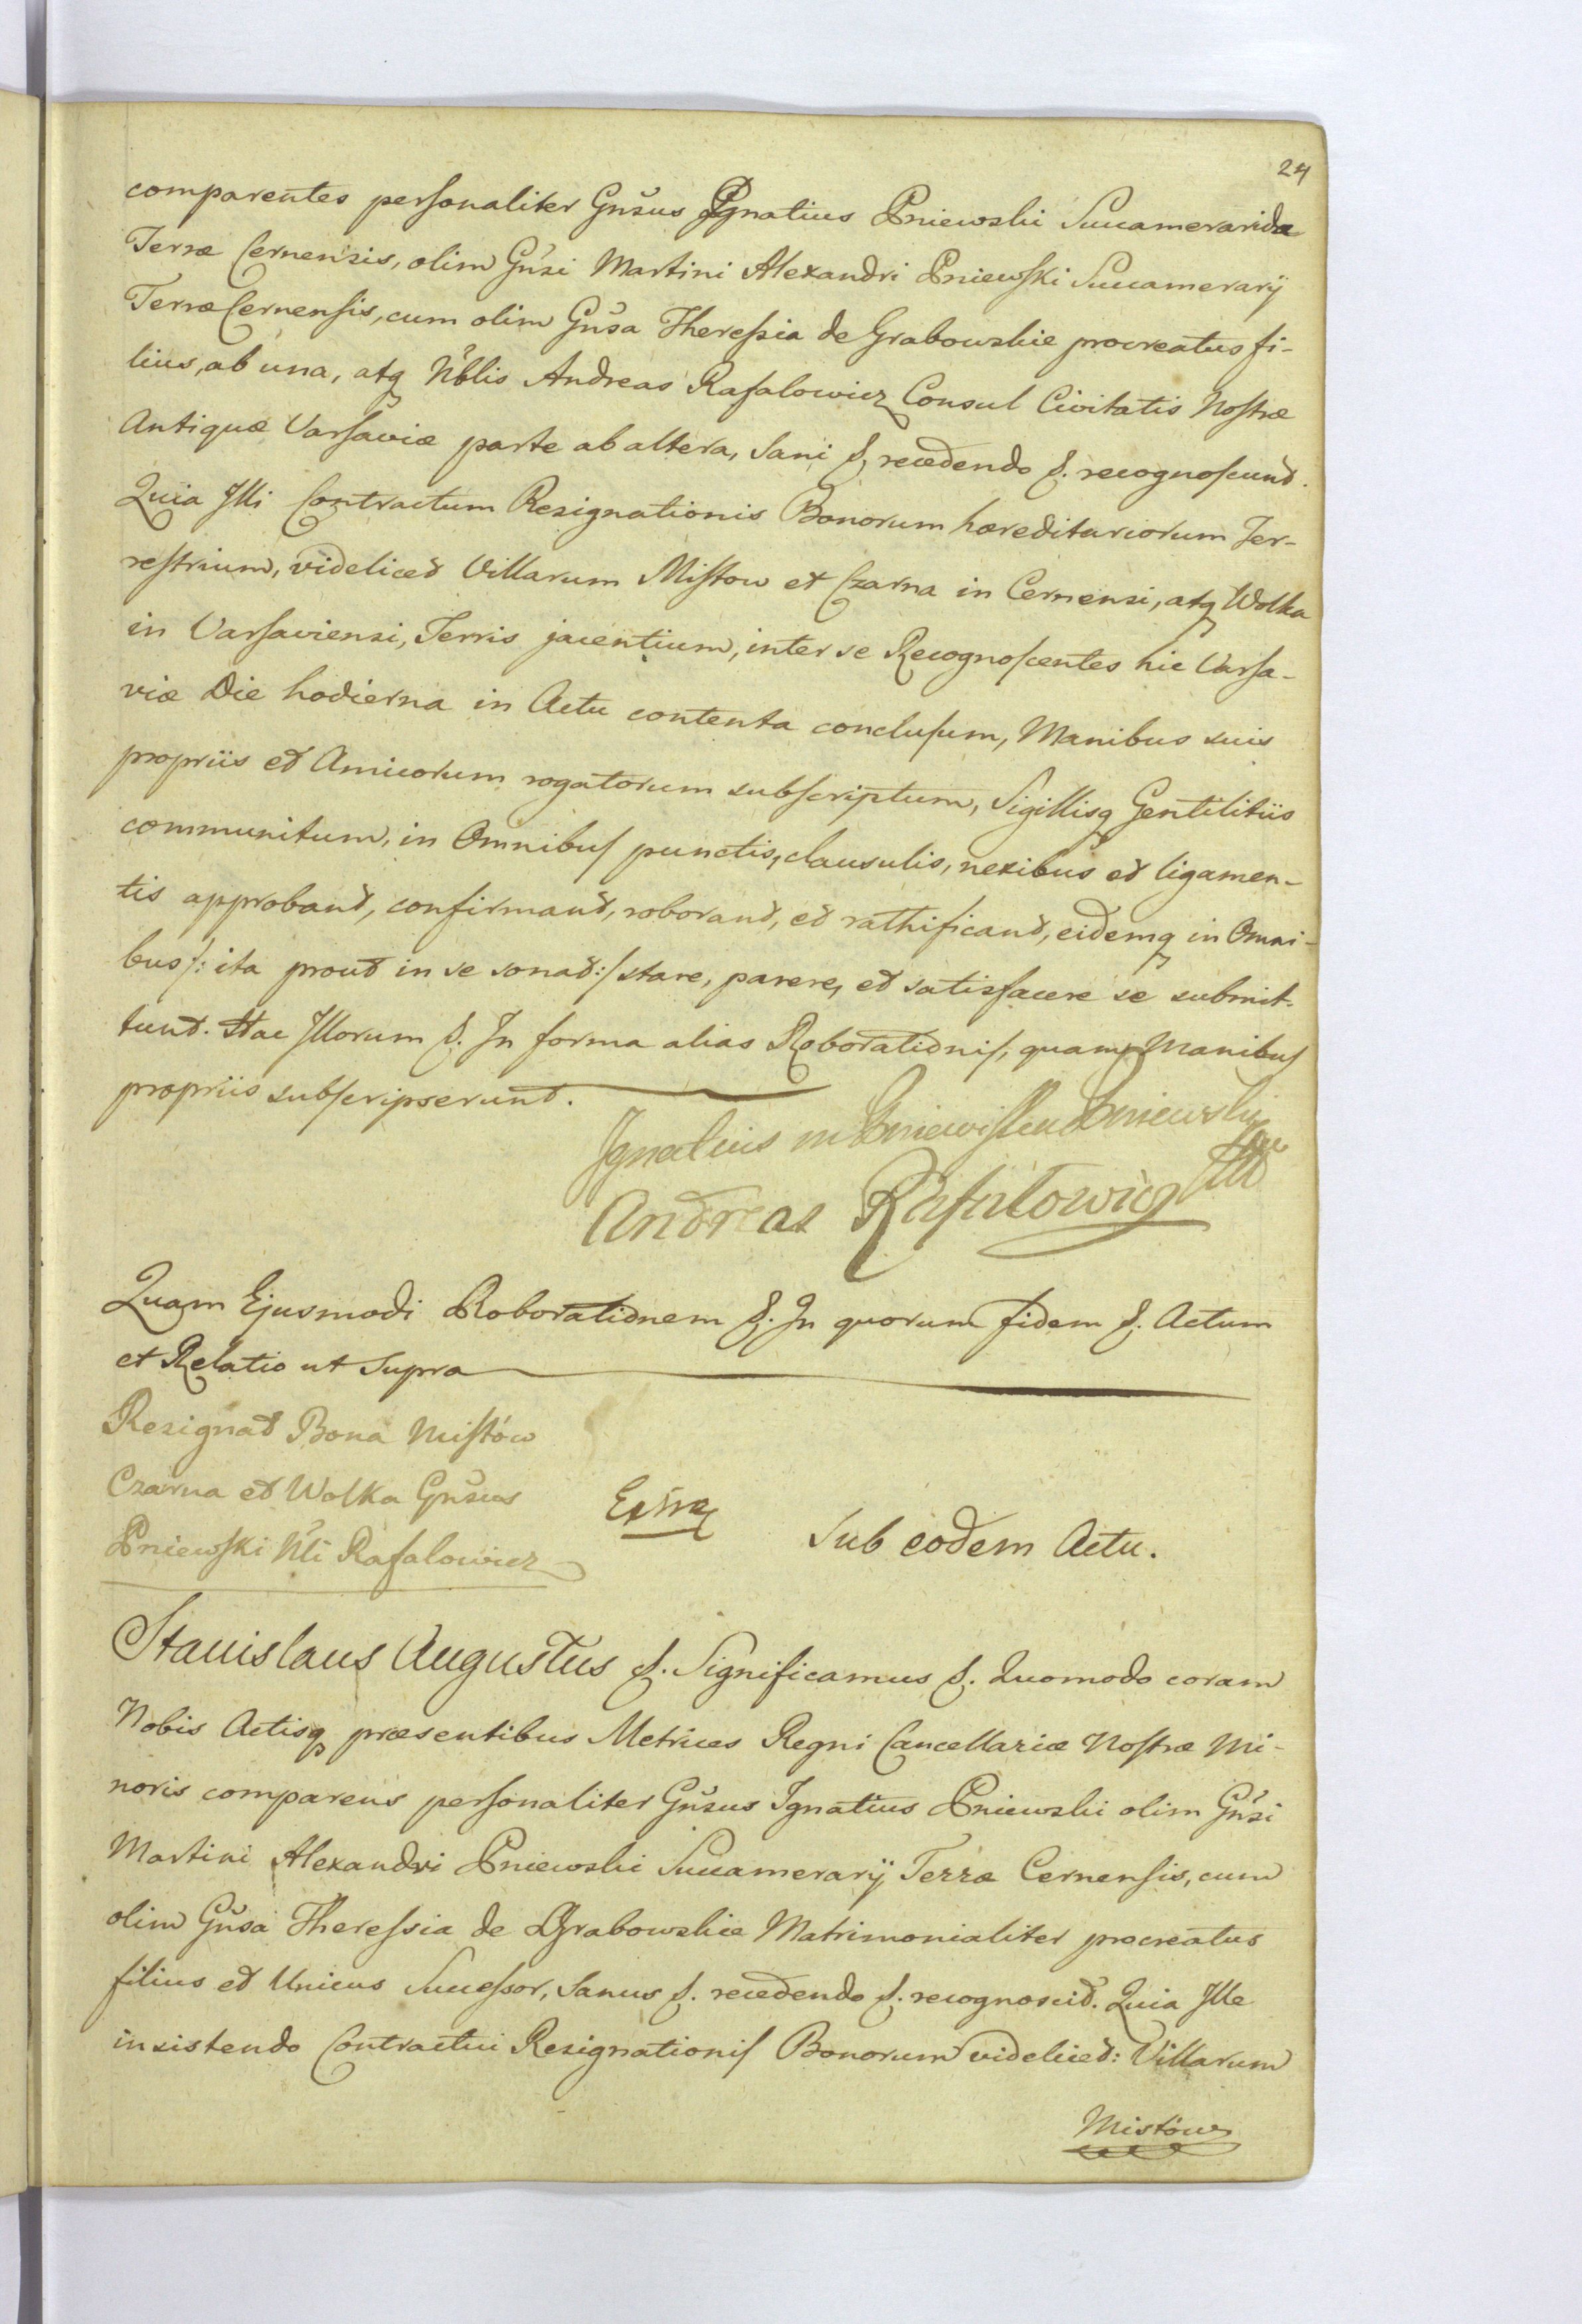 24
comparentes personaliter Gnsus Ignatius Pniewski Succamerarida
Terræ Cernensis, olim Gnsi Martini Alexandri Pniewski Succamerarij
Terræ Cernensis, cum olim Gnsa Theressia de Grabowskie procreatus fi-
lius, ab una, atq Nblis Andreas Rafalowicz Consul Civitatis Nostræ
Antiquæ Varsaviæ parte ab altera, Sani &. recedendo &. recognoscunt.
Quia Illi Contractum Resignationis Bonorum hæreditariorum Ter-
restrium, videlicet Villarum Mistow et Czarna in Cernensi, atq Wolka
in Varsaviensi, Terris jacentium, inter se Recognoscentes hic Varsa-
viæ Die hodierna in Actu contenta conclusum, Manibus suis
propriis et Amicorum rogatorum subscriptum, Sigillisq Gentilitiis
communitum, in Omnibus punctis, clausulis, nexibus et ligamen-
tis approbant, confirmant, roborant, et rathificant, eidemq in Omni-
bus /: ita prout in se sonat :/ stare, parere, et satisfacere se submit-
tunt. Hac Illorum &. In forma alias Roborationis, quam Manibus
propriis subscripserunt.
Ignatius Pniewski
Andreas Rafałowicz
Quam Ejusmodi Roborationem &. In quorum fidem &. Actum
et Relatio ut Supra
Resignat Bona Mistów
Czarna et Wolka Gnsus
Pniewski Nli Rafalowicz
Extr
Sub eodem Actu.
Stanislaus Augustus &. Significamus &. Quomodo coram
Nobis Actisq præsentibus Metrices Regni Cancellariæ Nostræ Mi-
noris comparens personaliter Gnsus Ignatius Pniewski olim Gnsi
Martini Alexandri Pniewski Succamerarij Terræ Cernensis, cum
olim Gnsa Theressia de Grabowskie Matrimonialiter procreatus
filius et Unicus Successor, Sanus &. recedendo &. recognoscit. Quia Ille
insistendo Contractui Resignationis Bonorum videlicet: Villarum
Mistów